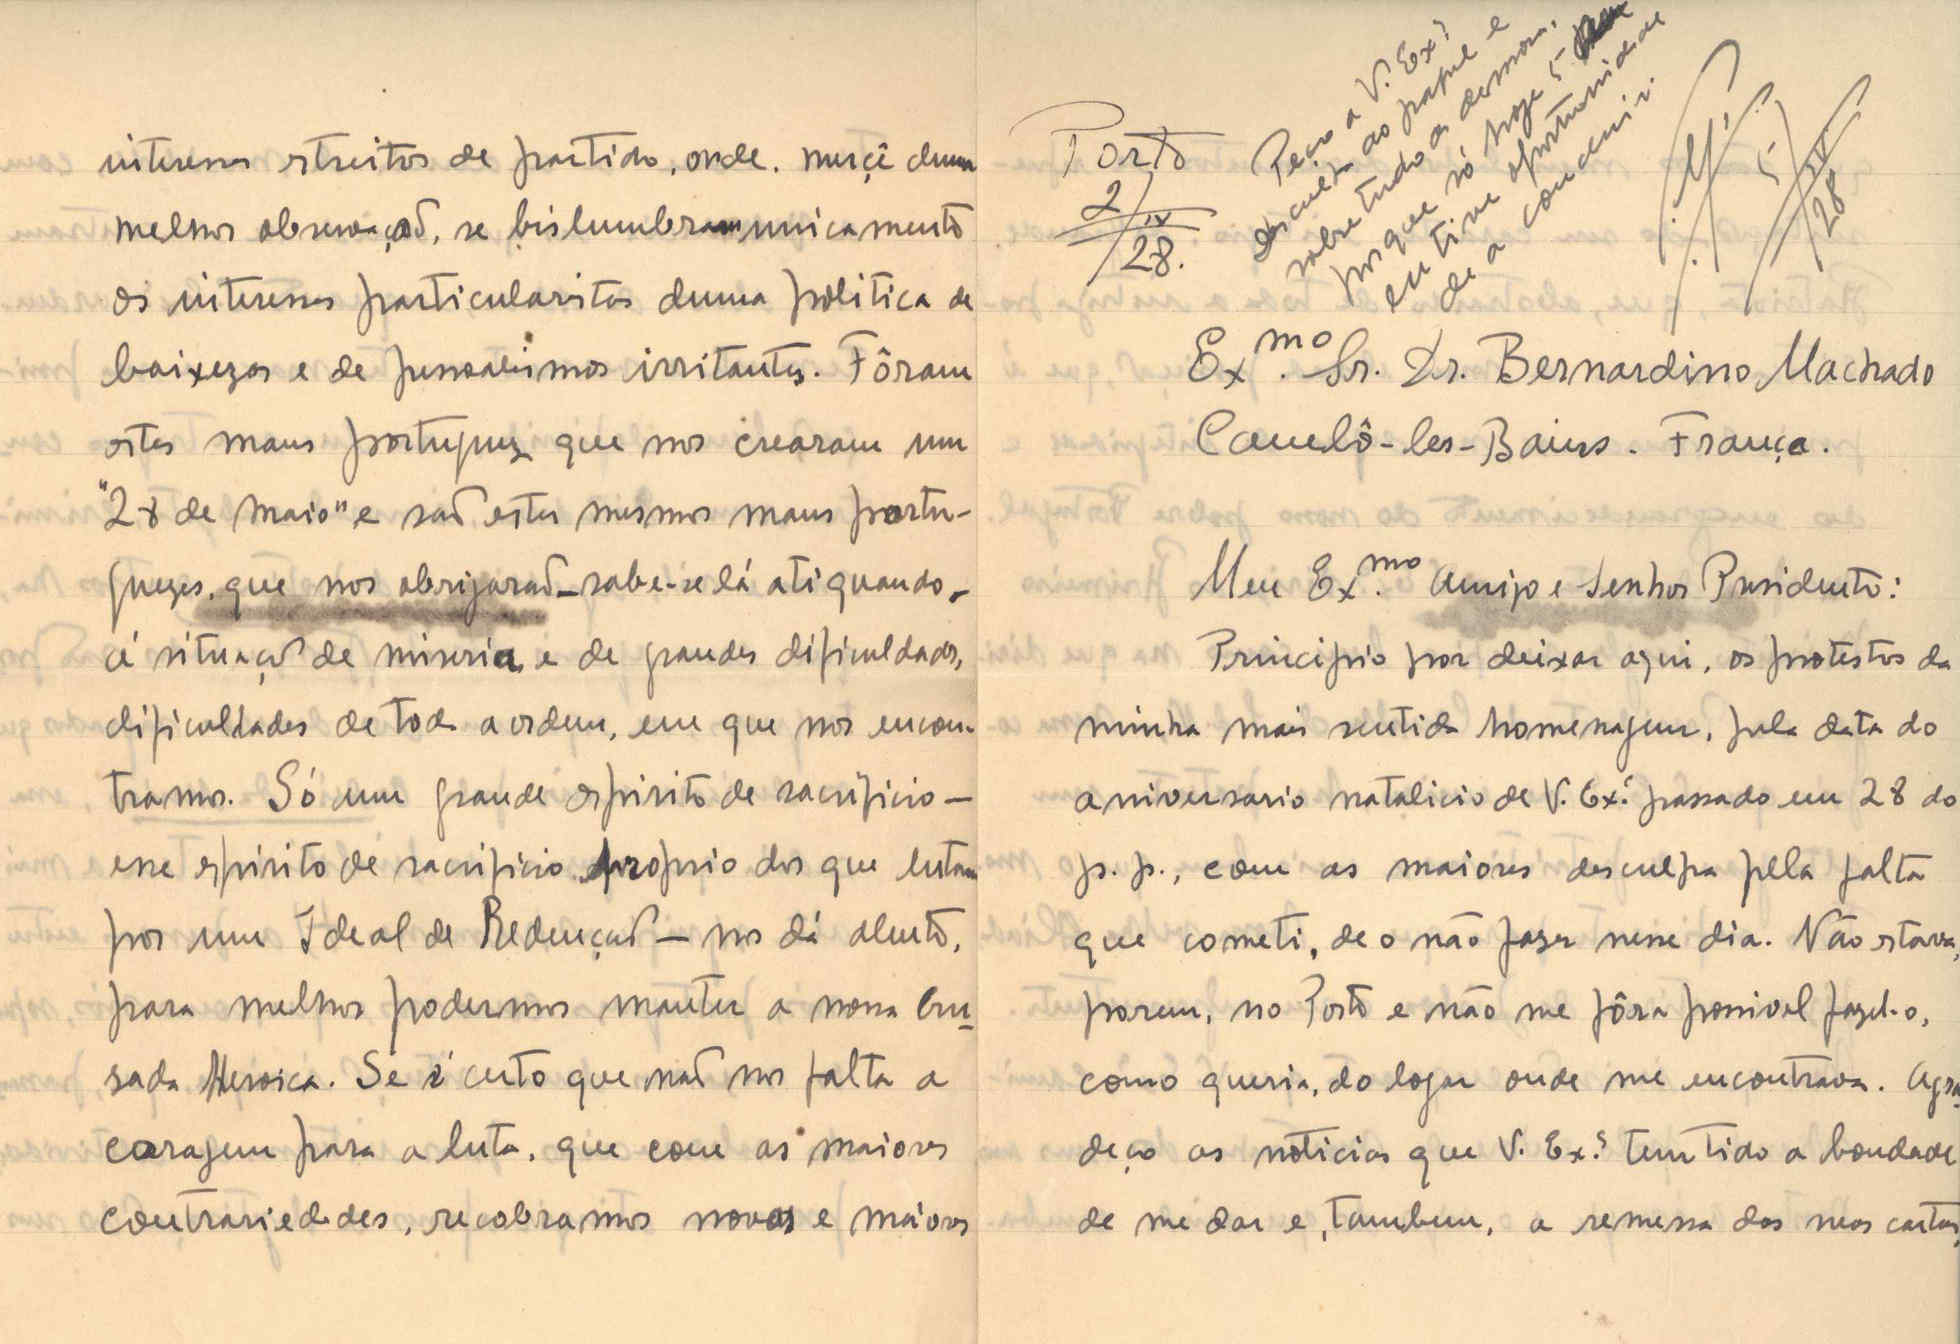 interesses estreitos de partido, onde, merçê duma
melhor observação, se bislumbram unicamente
os interesses particularistas duma politica de
baixezas e de pessoalismos irritantes. Fôram
estes maus portuguezes que nos crearam um
"28 de Maio" e são estes mesmos maus portu-
guezes, que nos obrigarão - sabe-se lá até quando -
á situação de miseria, e de grandes dificuldades,
dificuldades de toda a ordem, em que nos encon-
tramos. Só um grande espirito de sacrificio -
esse espirito de sacrificio proprio dos que lutam
por um Ideal de Redenção - nos dá alento,
para melhor podermos manter a nossa Cru-
sada Heroica. Se é certo que não nos falta a
coragem para a luta, que com as maiores
contrariedades, recobramos novas e maiores
Porto
2/IV/28.
Peço a V. Exª
desculpa ao papel e
sobre tudo a demora,
porque só hoje 5
eu tive oportunidade
de a concluir.
5/IV/28
Ex.mo Sr. Dr. Bernardino Machado
Caulô-les-Bains. França.
Meu Ex.mo Amigo e Senhor Presidente:
Principio por deixar aqui, os protestos da
minha mais sentida homenagem, pela data do
aniversario natalicio de V. Exª passado em 28 do
p. p., com as maiores desculpa pela falta
que cometi, de o não fazer nesse dia. Não estava,
porem, no Porto e não me fôra possivel fazel-o,
como queria, do logar onde me encontrava. Agra-
deço as noticias que V. Exª tem tido a bondade
de me dar e, tambem, a remessa das neas cartas,